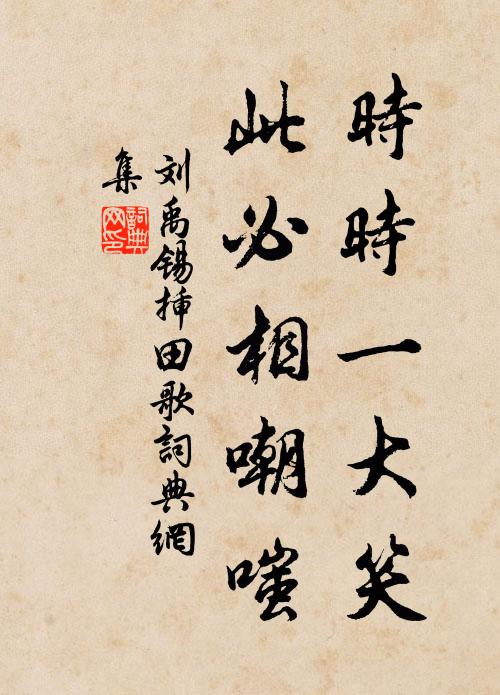 時時一大笑
此必相嘲嗤
刘禹锡插田歌詞典網
集
詞典网印